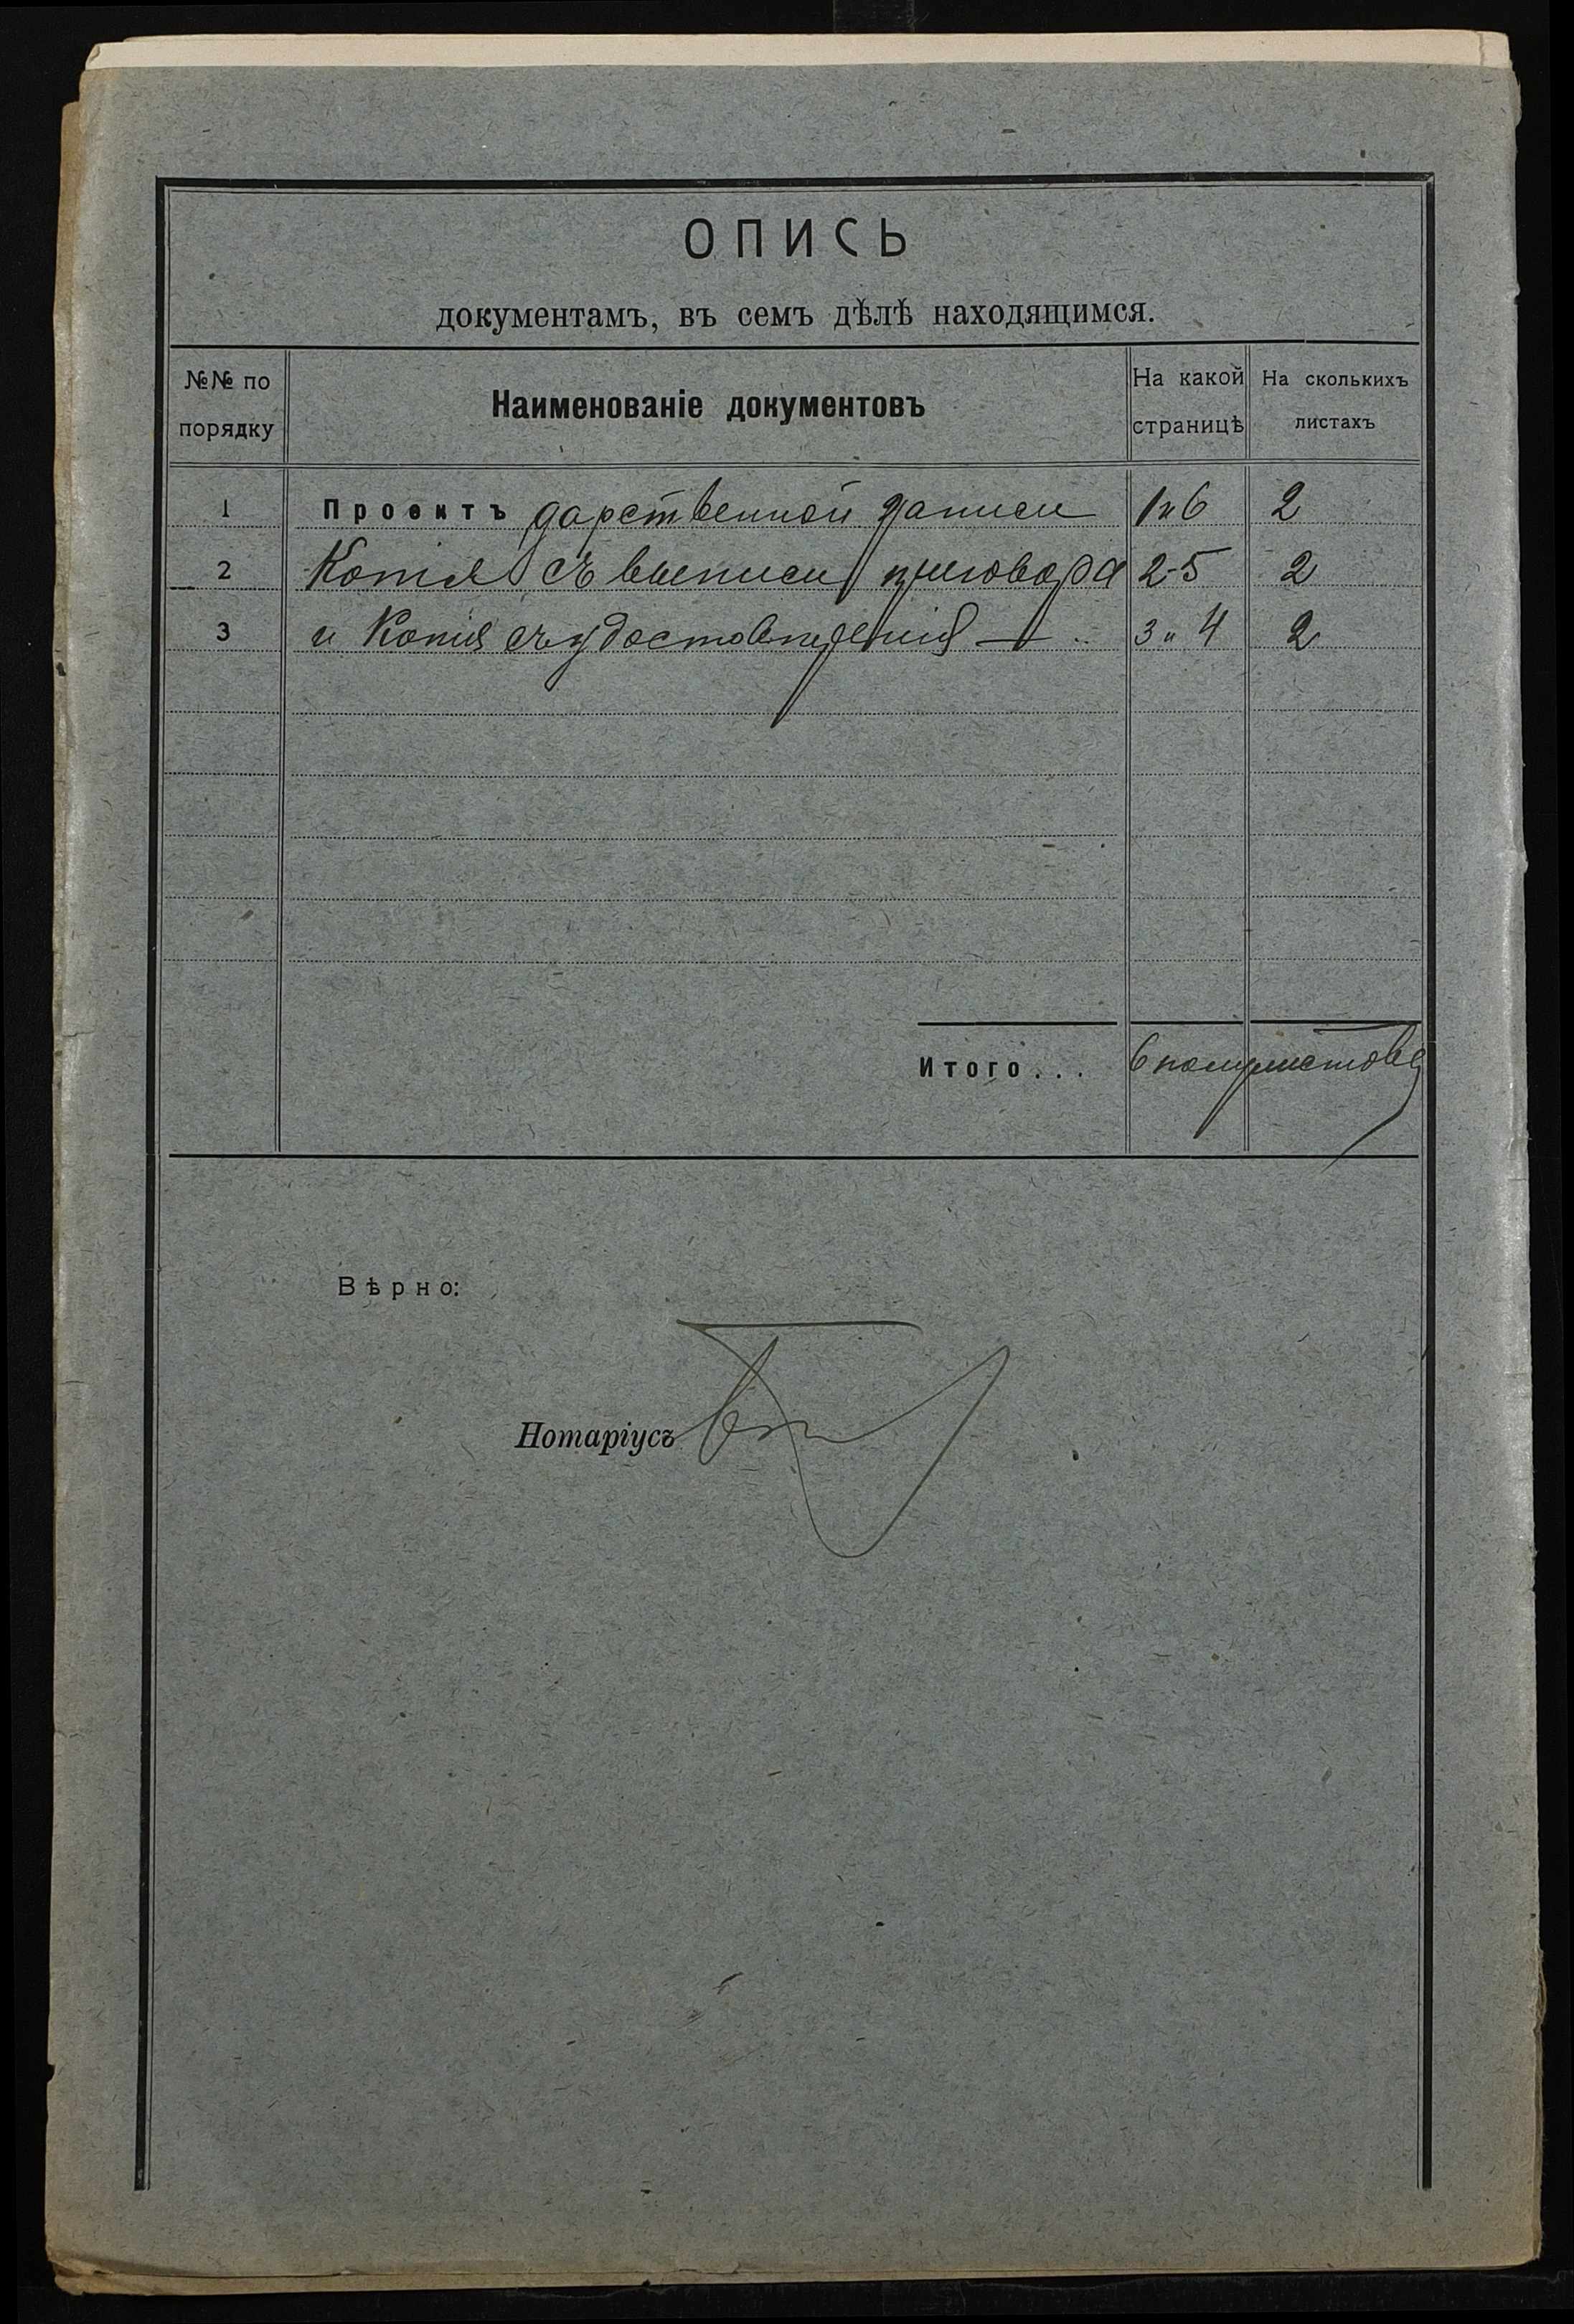 ОПИСЬ
документамъ, въ семъ дѣлѣ находящимся.
№№ по порядку Наименованіе документовъ На какой страницѣ На сколькихъ листахъ
1 Проектъ дарственной записи 1 и 6 2
2 Копія съ выписи приговора 2-5 2
3 и Копія съ удостовѣренія 3 и 4 2
Итого... 6 полулистовъ
Вѣрно:
Нотаріусъ